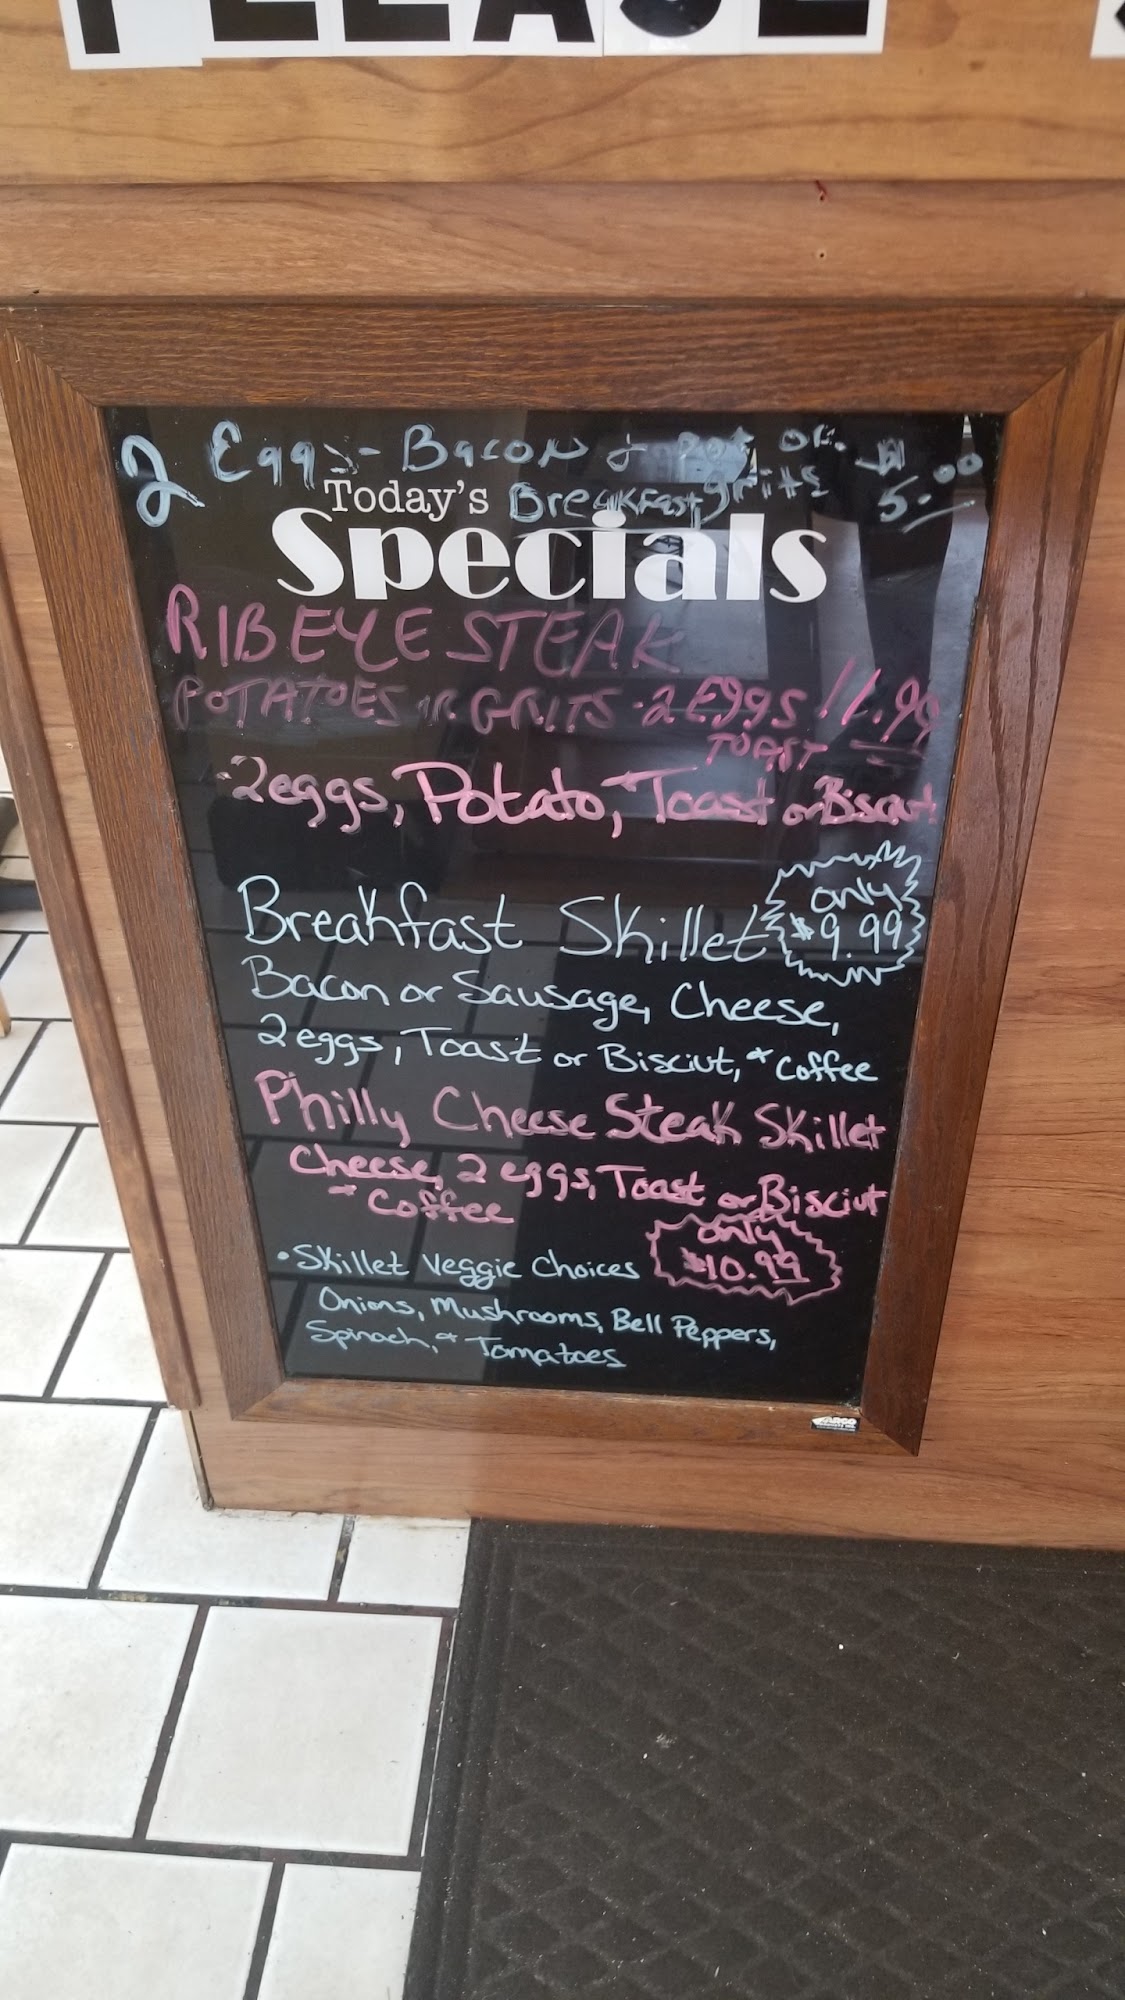 PLEASE
2 Eggs - Bacon & pot or. $
Today's Breakfast grits 5.00
Specials
RIBEYE STEAK
POTATOES or. GRITS - 2 Eggs 11.99
TOAST
-2eggs, Potato, + Toast or Biscuit
Breakfast Skillet only
$9.99
Bacon or Sausage, Cheese,
2 eggs, Toast or Bisciut, + Coffee
Philly Cheese Steak Skillet
Cheese, 2 eggs, Toast or Bisciut
+ Coffee
only
$10.99
• Skillet Veggie Choices
Onions, Mushrooms, Bell Peppers,
Spinach, + Tomatoes
ARGO